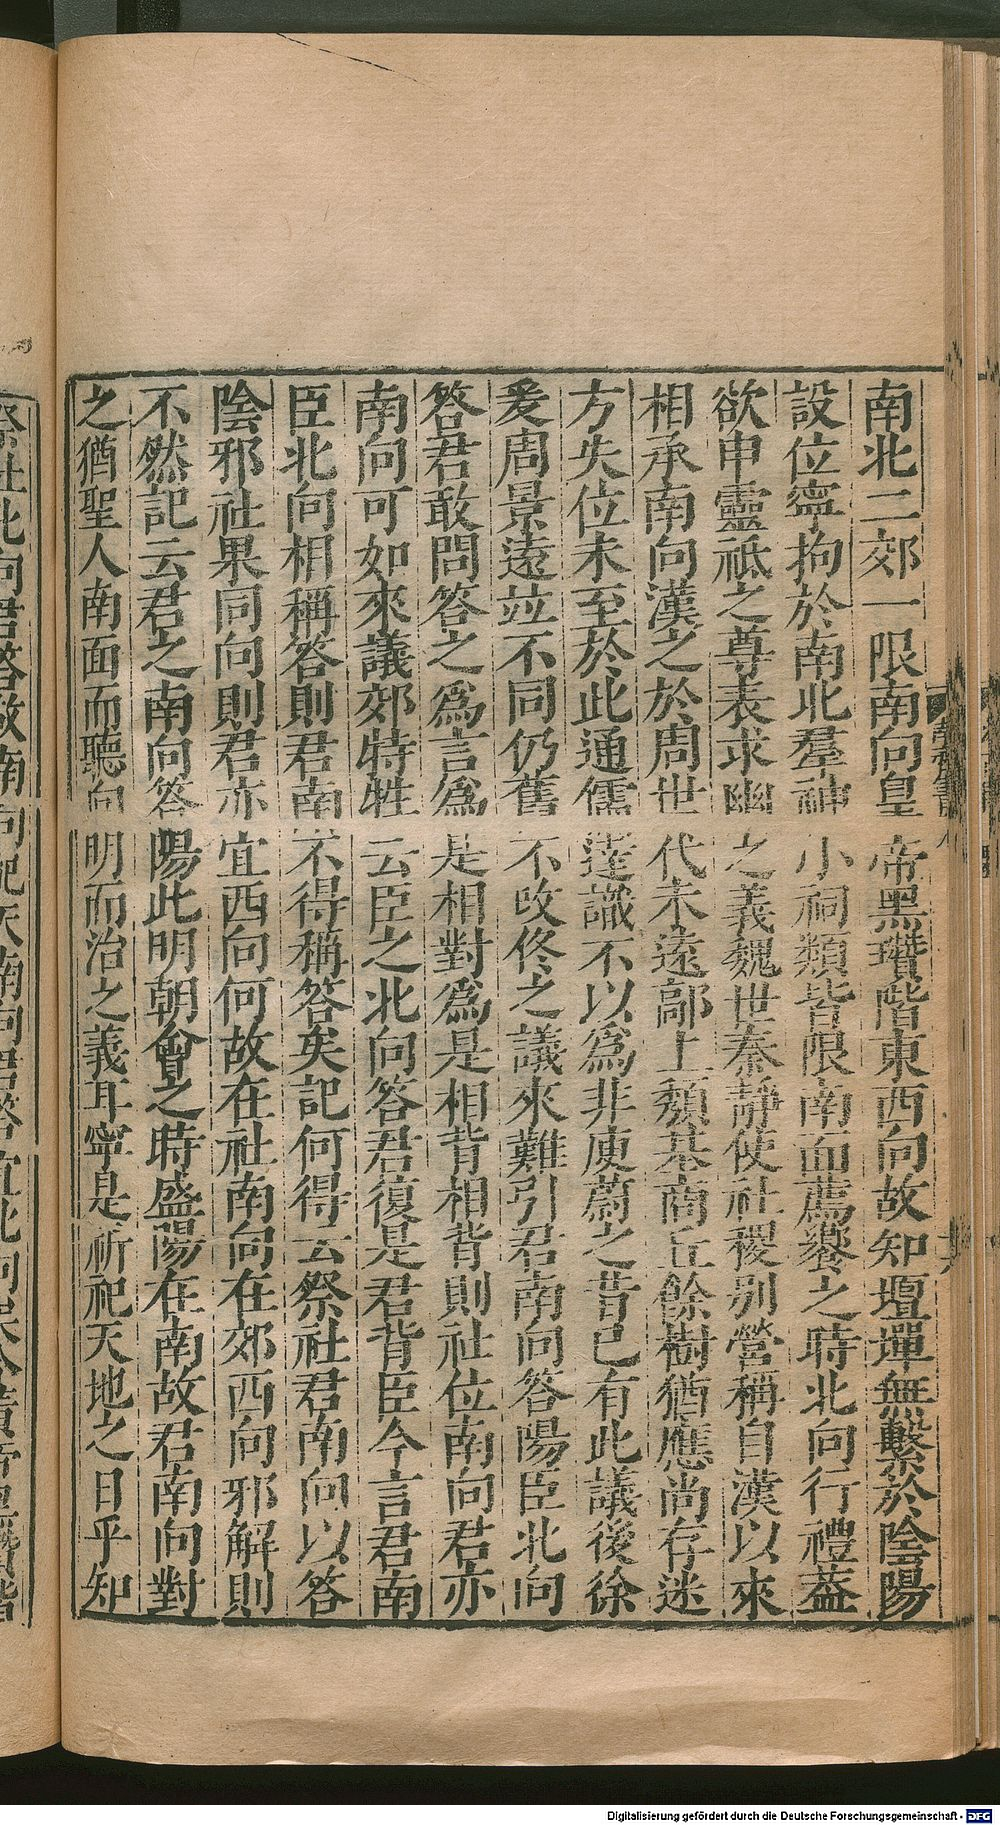 南北二郊一限南向皇帝黑瓚階東西向故知壇墠無繫於陰陽
設位寧拘於南北羣神小祠類皆限南面薦饗之時北向行禮葢
欲申靈祇之尊表求幽之義魏世秦靜使社稷別營稱自漢以來
相承南向漢之於周世代未遠鄗上頹基商丘餘樹猶應尚存迷
方失位未至於此通儒達識不以為非庾蔚之昔已有此議後徐
爰周景遠竝不同仍舊不改佟之議來難引君南向答陽臣北向
答君敢問答之為言為是相對為是相背相背則社位南向君亦
南向可如來議郊特牲云臣之北向答君復是君背臣今言君南
臣北向相稱答則君南不得稱答矣記何得云祭社君南向以答
陰邪社果同向則君亦宜西向何故在社南向在郊西向邪解則
不然記云君之南向答陽此明朝會之時盛陽在南故君南向對
之猶聖人南面而聽向明而治之義耳寧是祈祀天地之日乎知
Digitalisierung gefördert durch die Deutsche Forschungsgemeinschaft - DFG